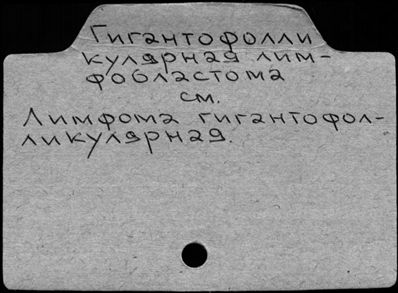 Гигантофолли
кулярная лим-
фобластома
см.
Лимфома гигантофол-
ликулярная.